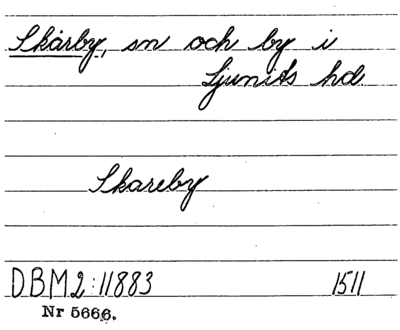 Skårby, sn och by i
Ljunits hd
Skareby
DBM2:11883 1511
Nr 5666.